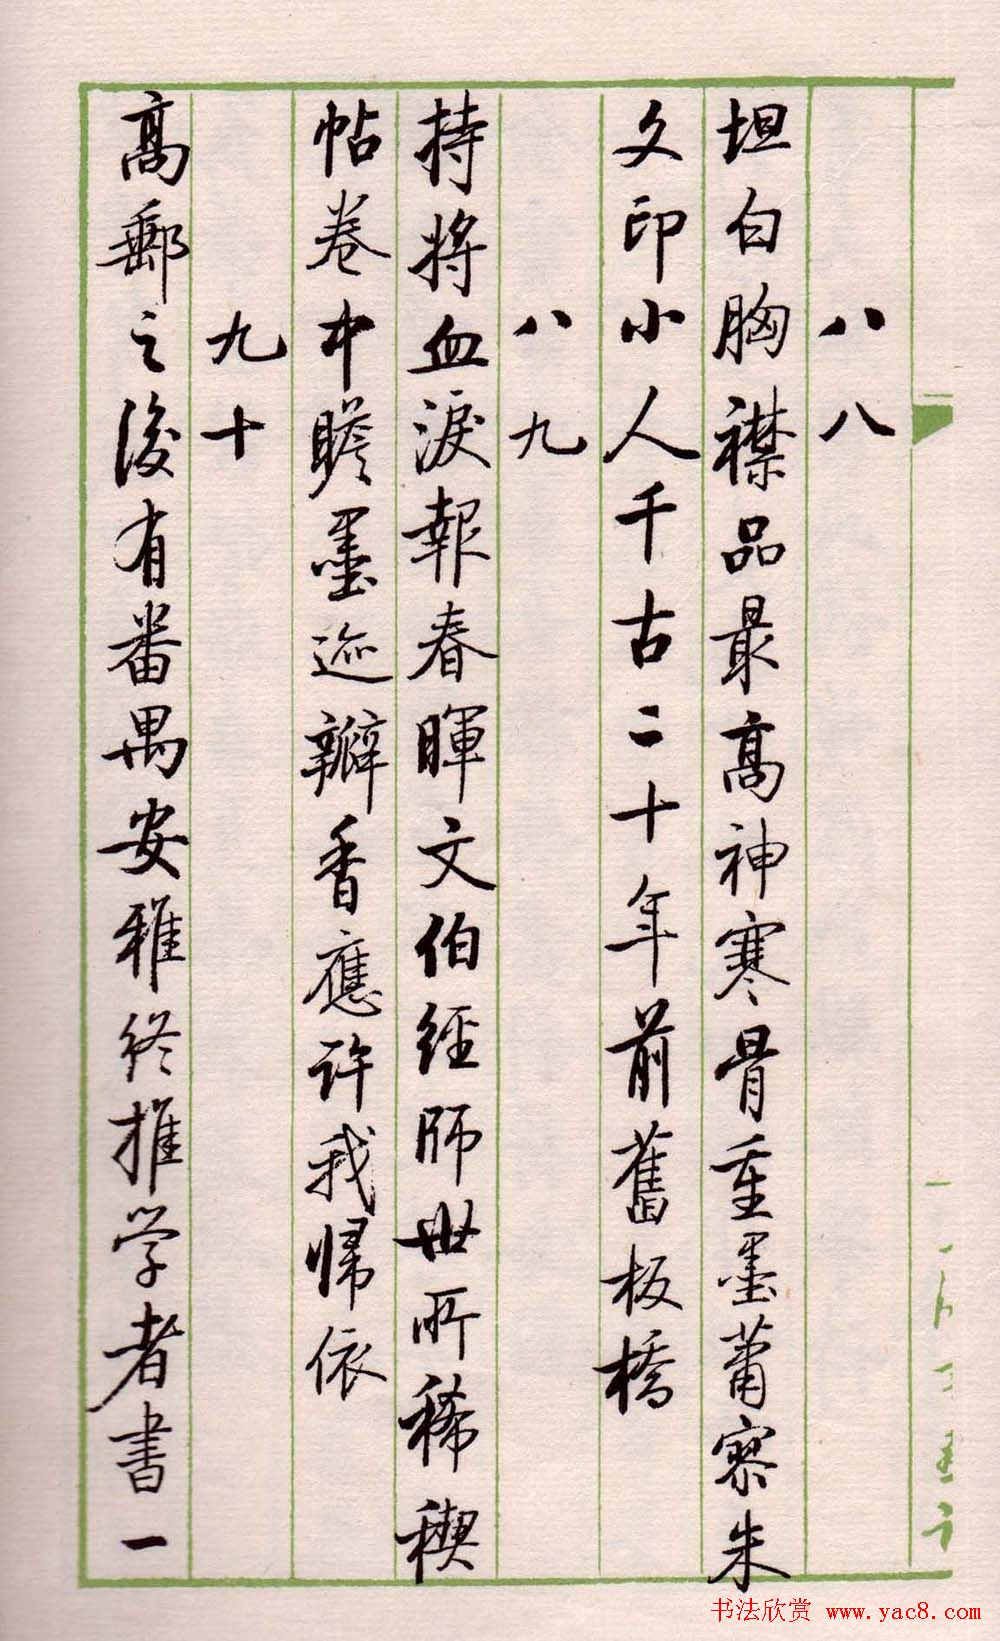 八八
坦白胸襟品最高神寒骨重墨萧寥朱
文印小人千古二十年前舊板橋
八九
持将血淚報春暉文伯經師世所稀禊
帖卷中瞻墨迹瓣香應许我归依
九十
高郵之後有番禺安雅终推学者書一
书法欣赏 www.yac8.com